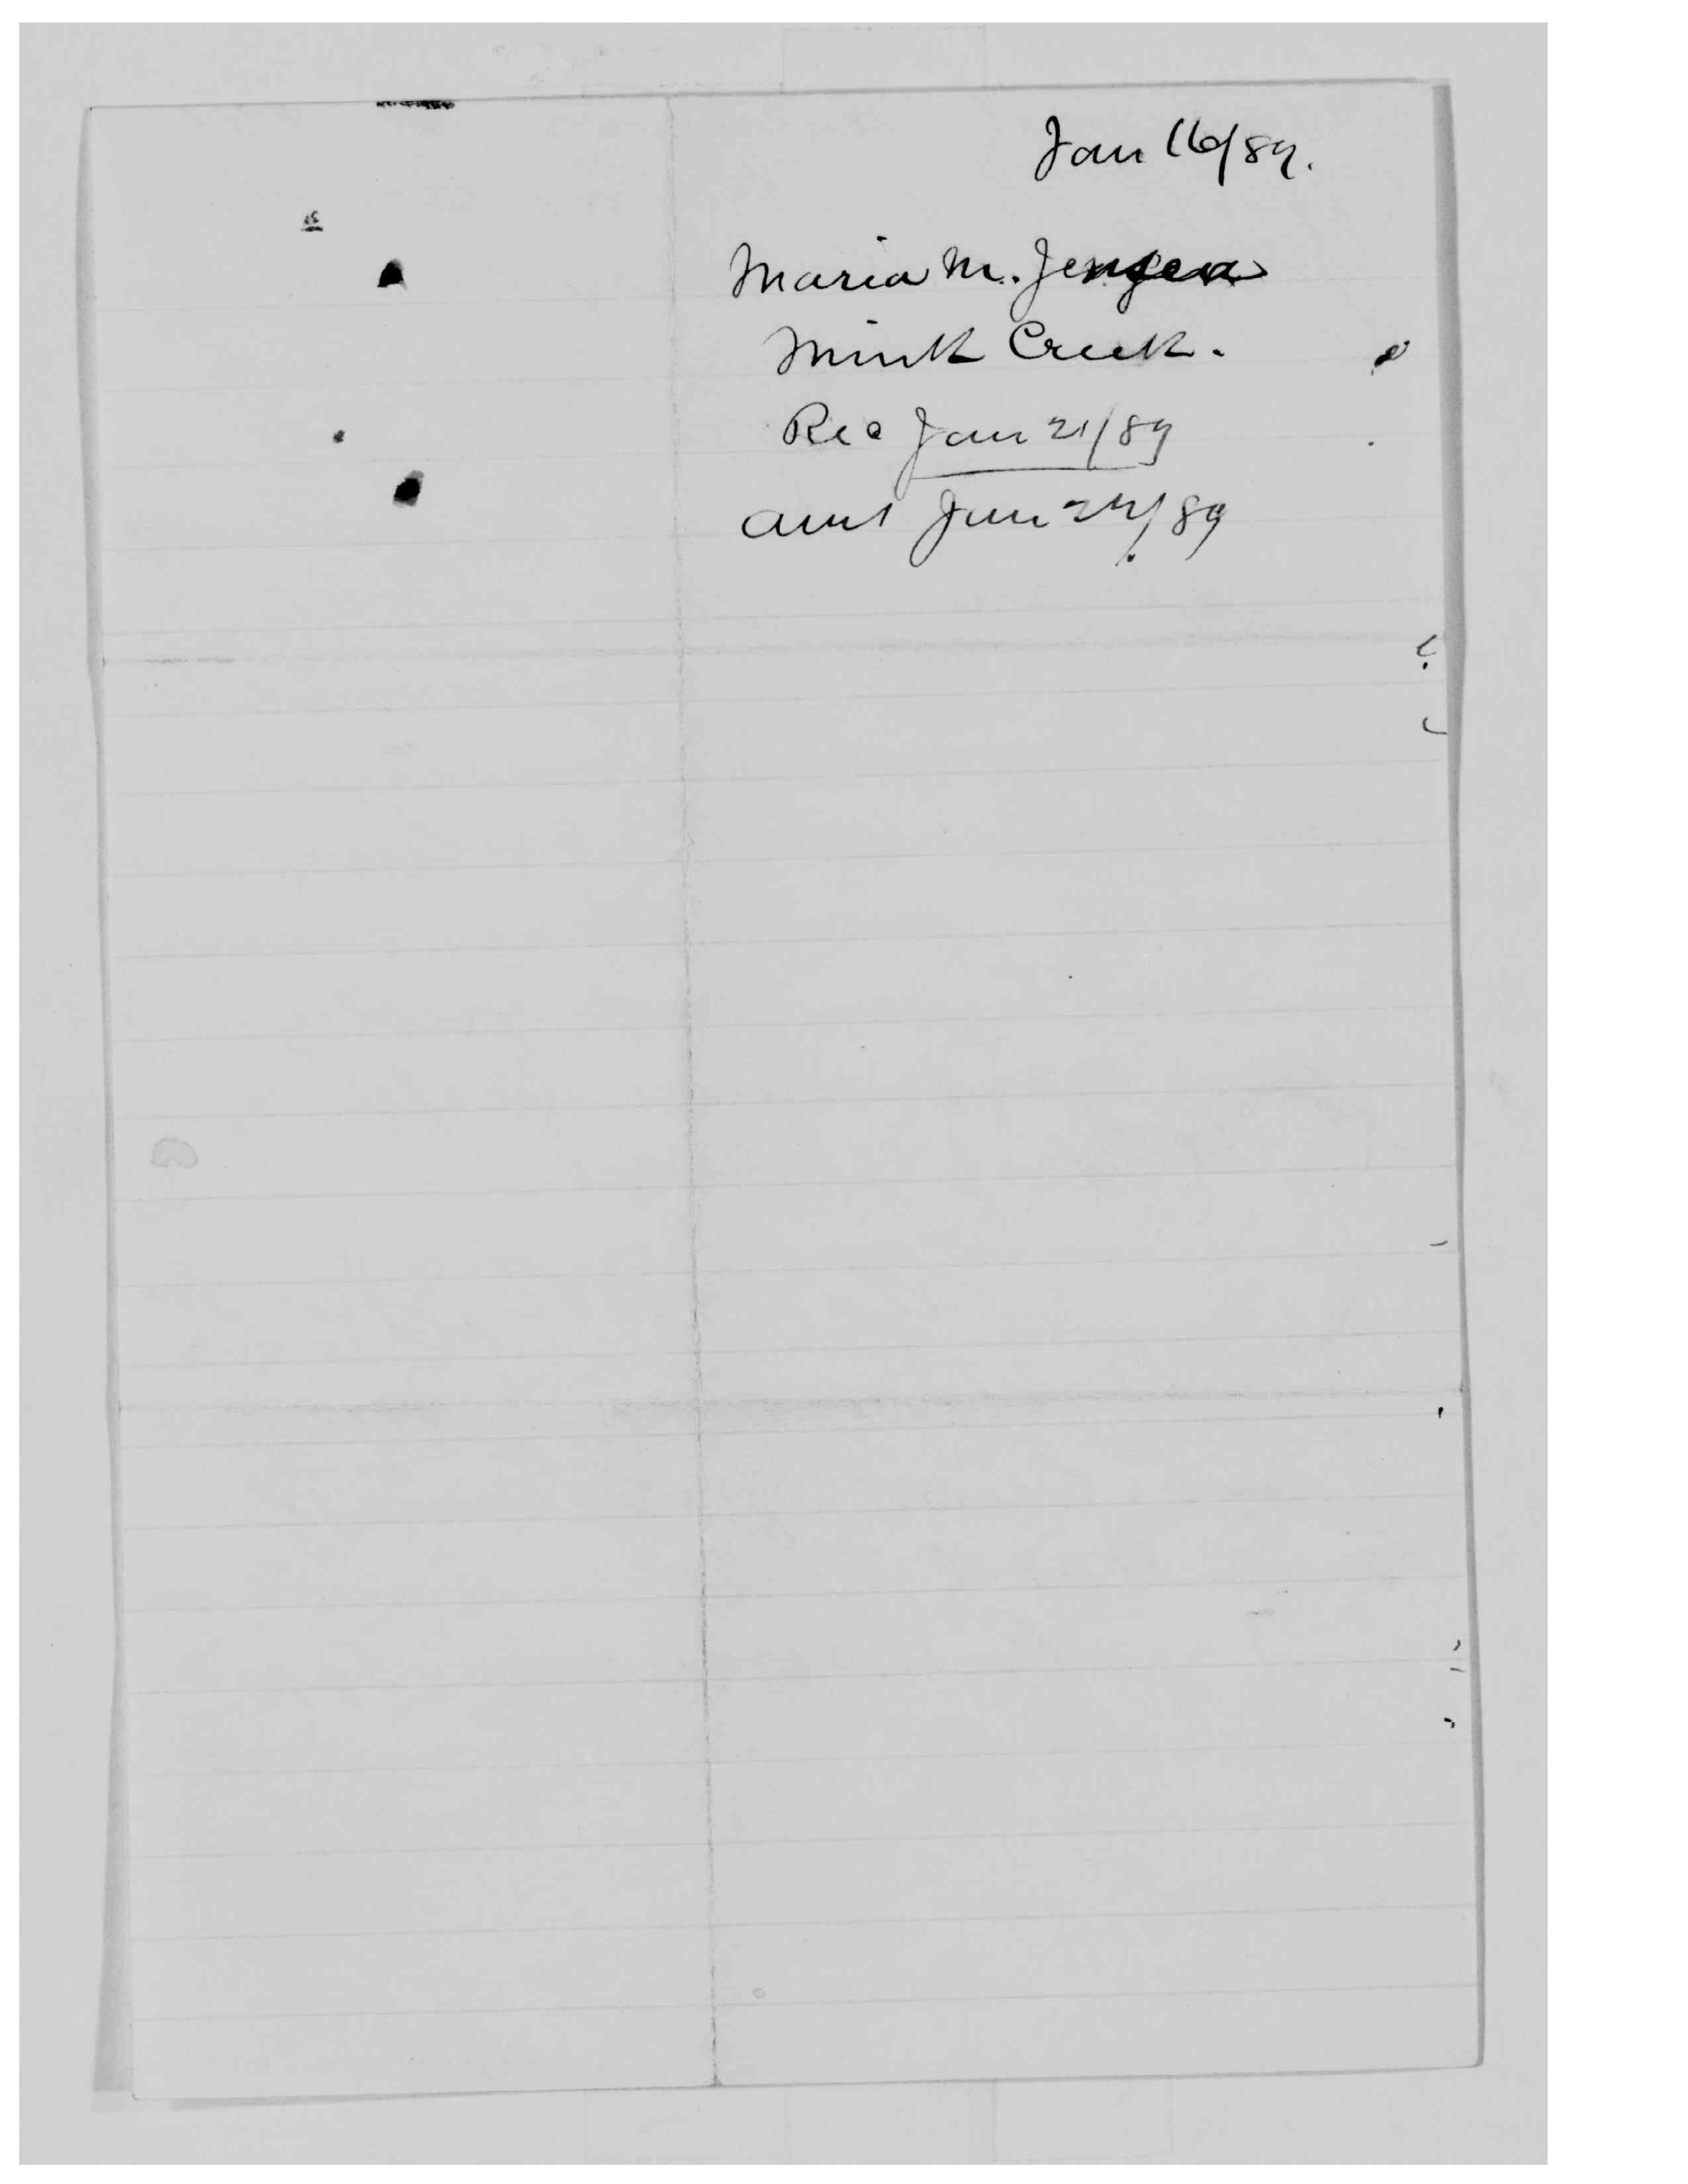 Jan 16/89.
Maria M. Jensen
Mink Creek.
Rec Jan 21/89
Ans Jan 24/89